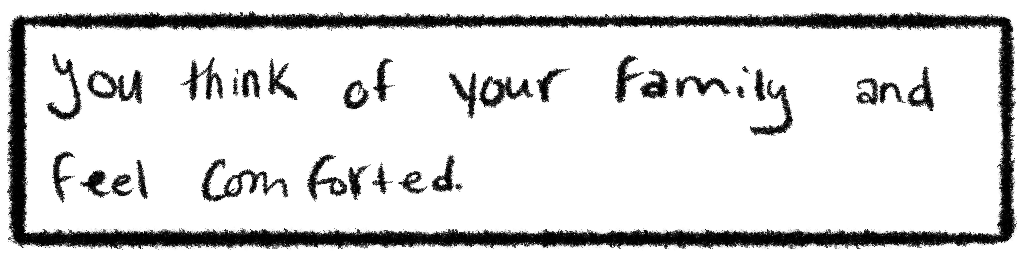 you think of your family and
feel comforted.